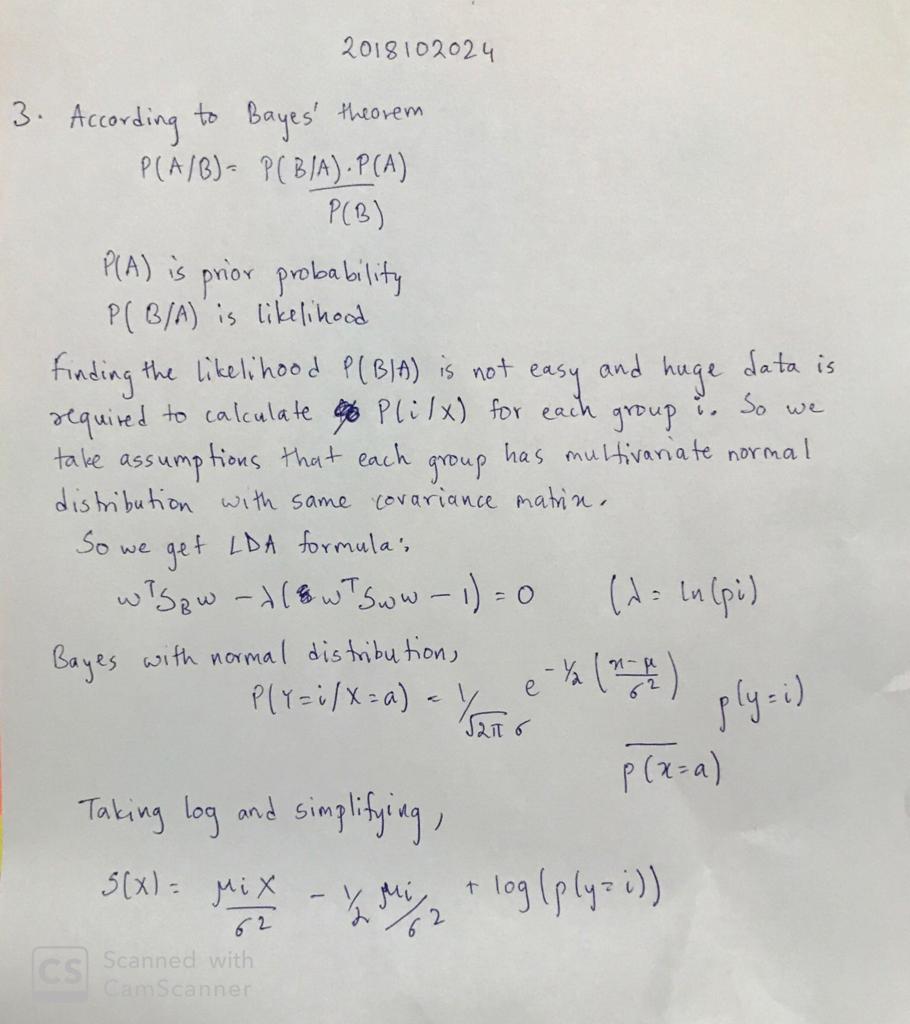 2018102024
3. According to Bayes' theorem
P(A/B) = P(B/A).P(A)
P(B)
P(A) is prior probability
P(B/A) is likelihood
Finding the likelihood P(B/A) is not easy and huge data is
required to calculate P(i/x) for each group i. So we
take assumptions that each group has multivariate normal
distribution with same covariance matrix.
So we get LDA formula:,
wᵀS_B w - λ(wᵀS_W w - 1) = 0 (λ = ln(pi)
Bayes with normal distribution,
P(Y=i/X=a) = 1/√2π σ e^-½(x-μ/σ²) p(y=i)
p(x=a)
Taking log and simplifying,
S(X) = μi X/σ² - ½ μi/σ² + log(p(y=i))
CS Scanned with
CamScanner